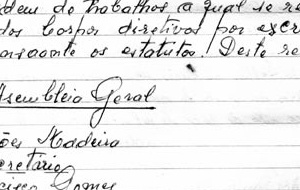 dem de trabalhos a qual se re
dos Corpos diretivos por escr
consoante os estatutos. Deste re
Assembleia Geral
ões Madeira
cretário
cisco Gomes